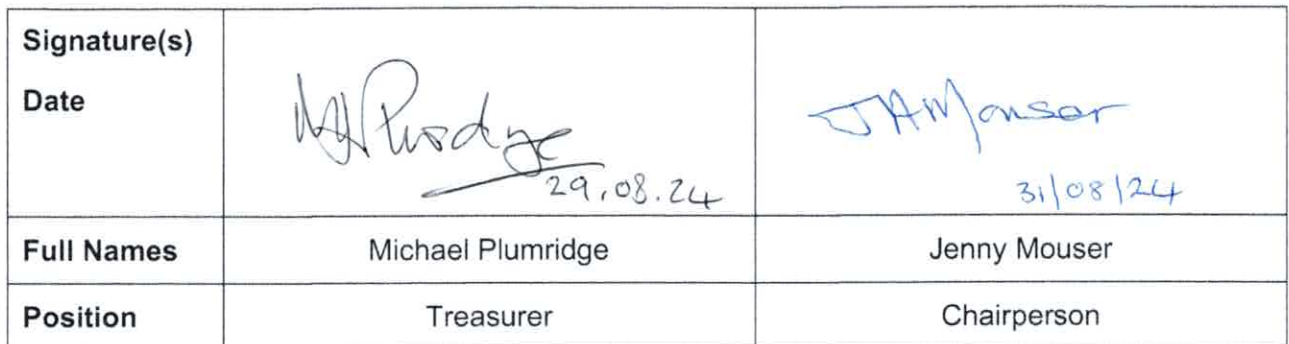 Signature(s)
Date
MH Plumridge
JAMouser
29.08.24
31/08/24
Full Names Michael Plumridge Jenny Mouser
Position Treasurer Chairperson